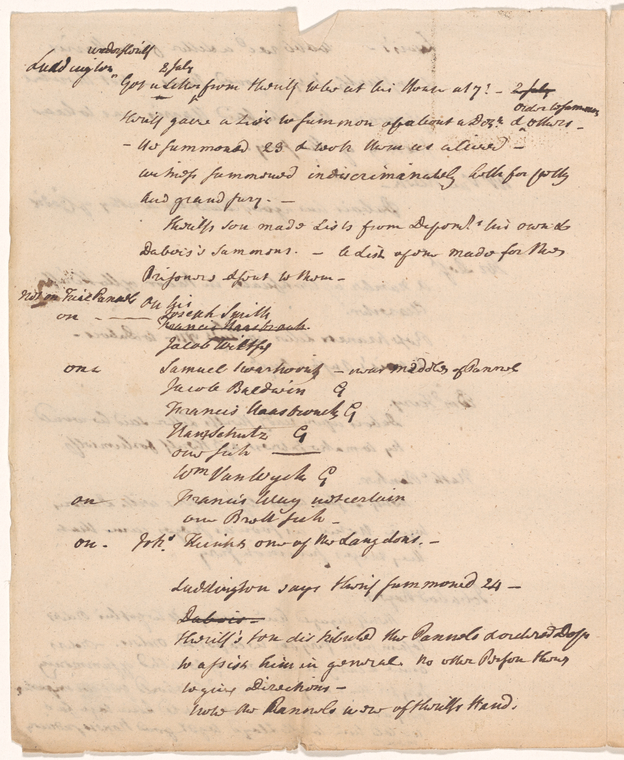 undersheriff
Luddington 2 July
" Got a Letter from Sheriff to be at his House at 7? - 2 July
order to summon
Sheriff gave a List to summon of about a Doz. & others -
- He summoned 23 & took them as alived -
witness summoned indiscriminately both for petty
and grand jury. -
Sheriffs son made Lists from Depon.ts his own &
Dubois's Summons. - a List of one made for the
Prisoners & sent to them -
Not on Trial Pannels on his
on - Joseph Smith
Francis Haasbrouck
Jacob Wiltse
on Samuel Swarthout - near middle of Pannel
Jacob Baldwin G
Francis Haasbrouck G
Schutz G
one sick
Wm Van Wyck G
on Francis Way uncertain
one Brett sick -
on - Joh.s one of the Langdons. -
Luddington says Sheriff summoned 24 -
Dubois -
Sheriff's son distributed the Pannels & ordered Dep.
to assist him in general. no other Person there
to give Directions -
the Pannels were of Sheriffs Hand.